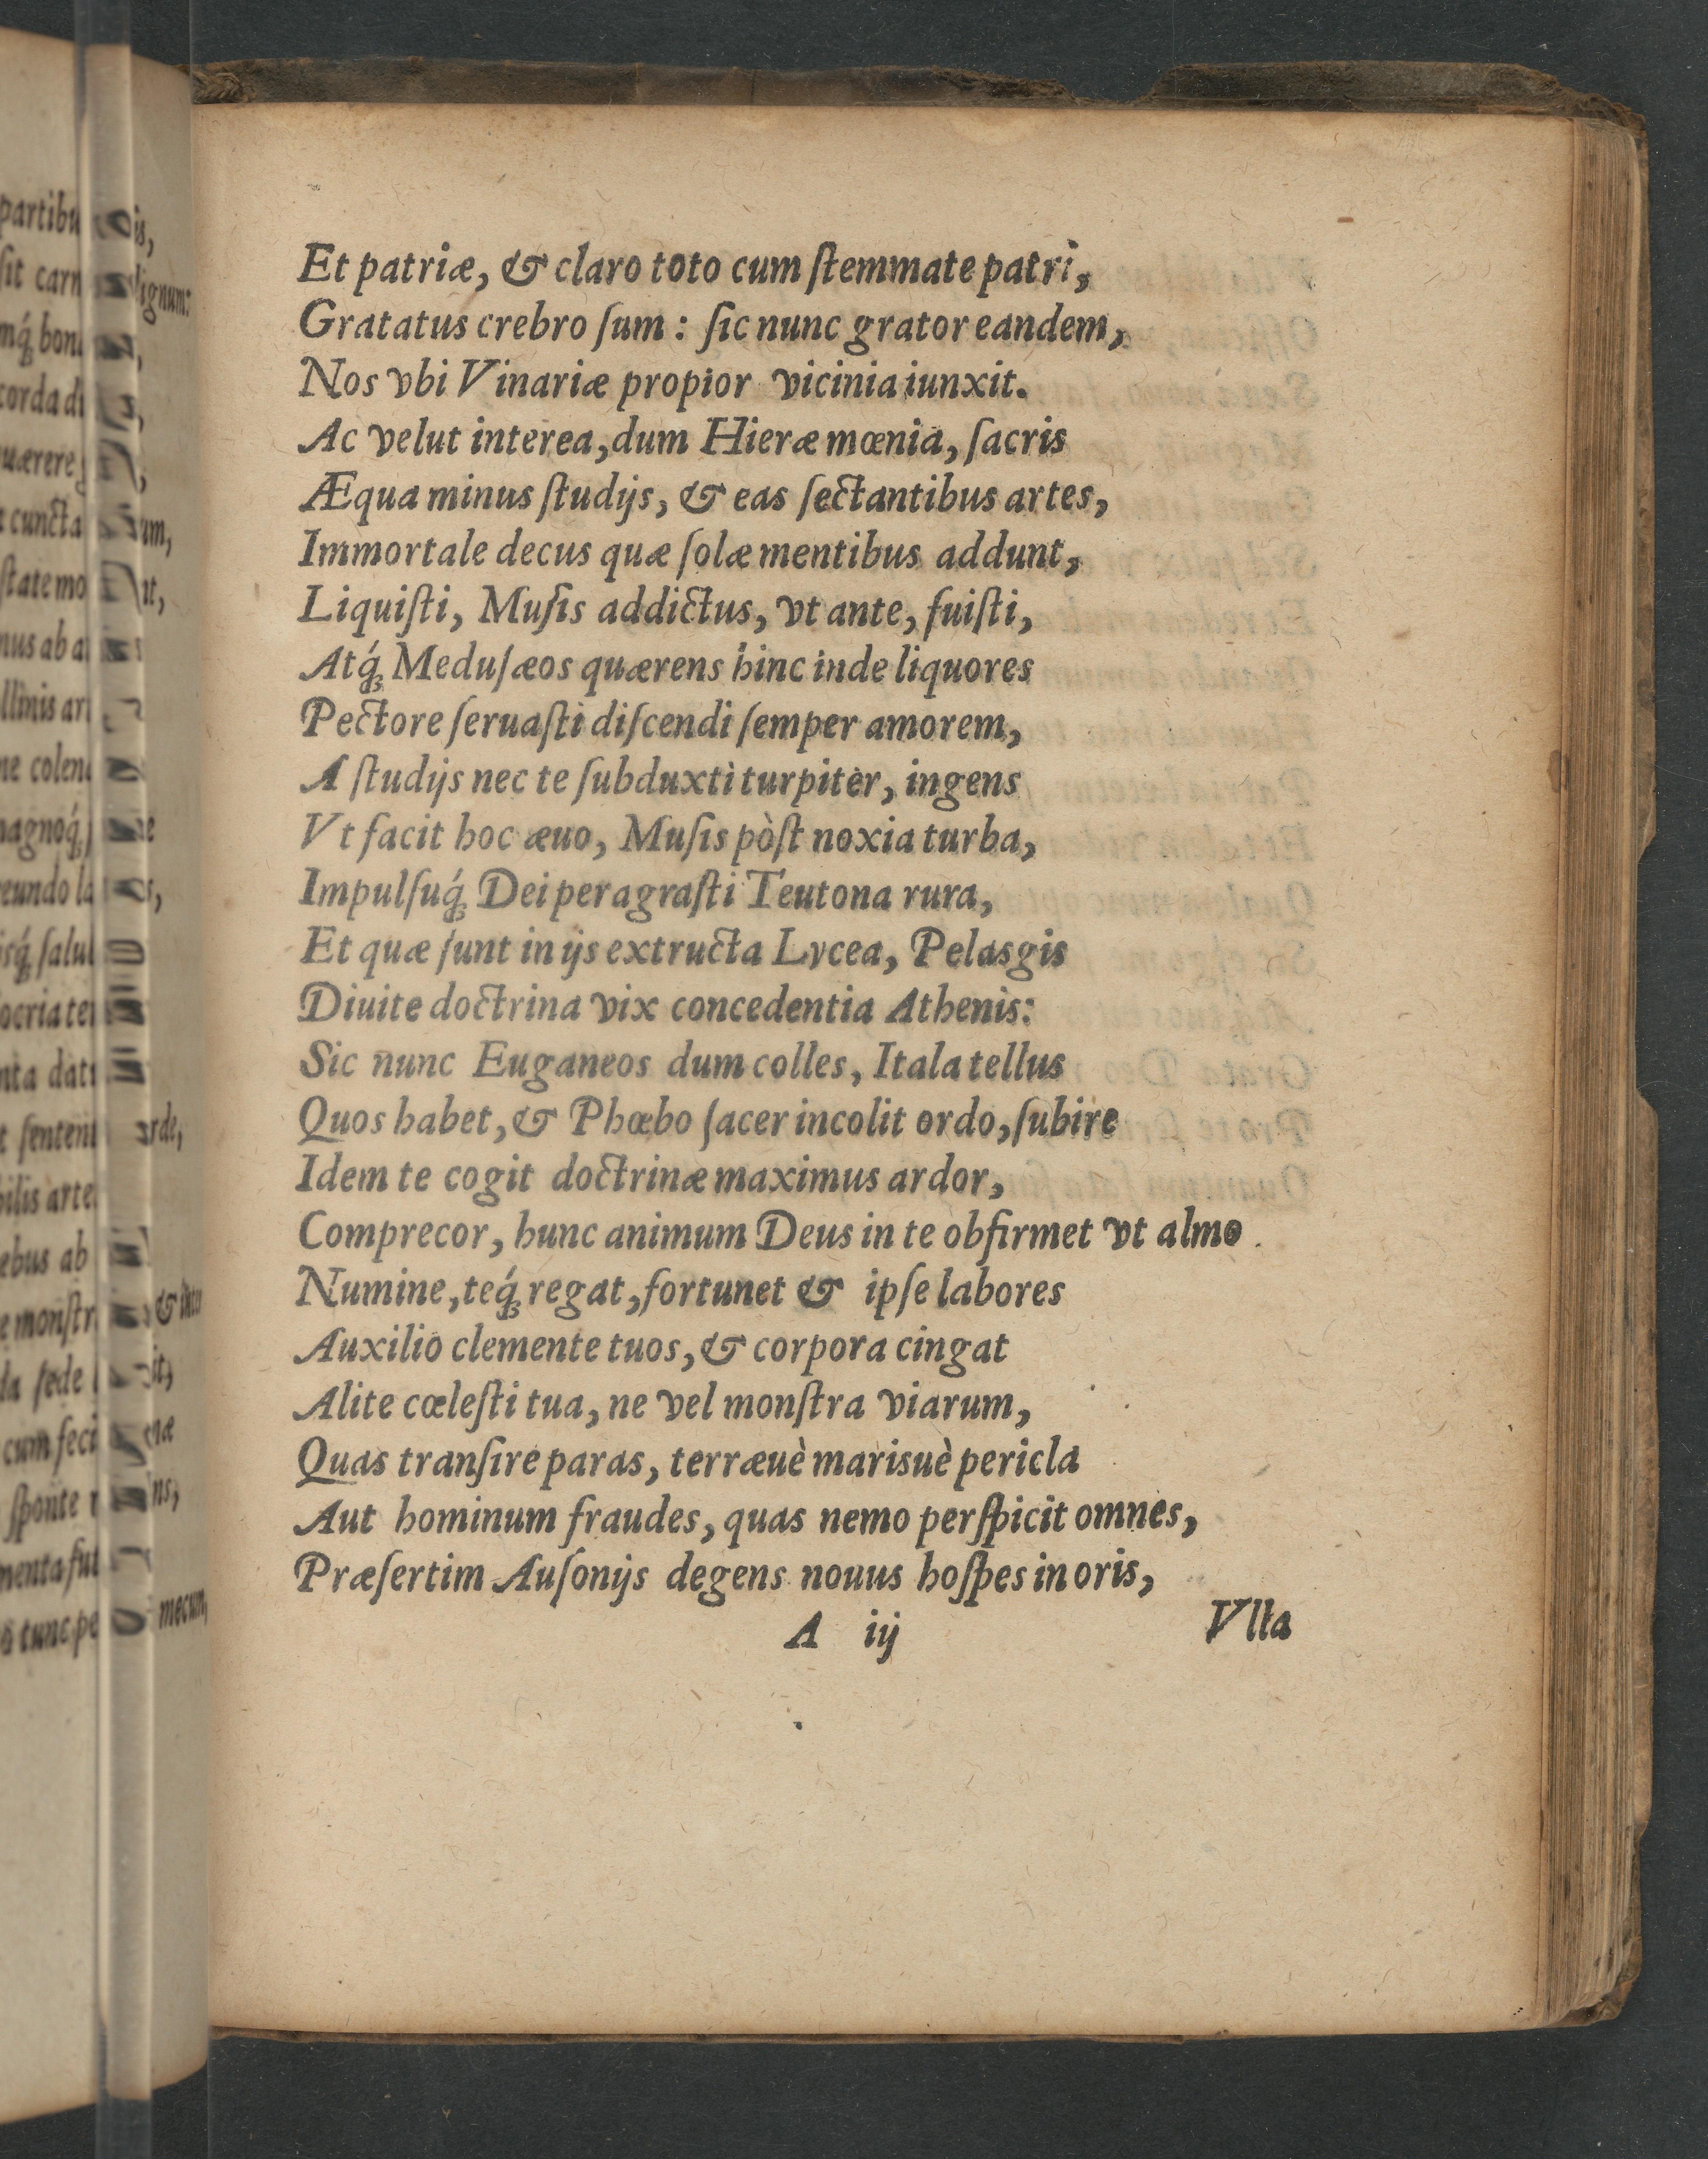 Et patriæ, & claro toto cum ſtemmate patri,
Gratatus crebro ſum: ſic nunc grator eandem,
Nos vbi Vinariæ propior vicinia iunxit.
Ac velut interea, dum Hieræ mœnia, ſacris
Æqua minus ſtudijs, & eas ſectantibus artes,
Immortale decus quæ ſolæ mentibus addunt,
Liquiſti, Muſis addictus, vt ante, fuiſti,
Atq́; Meduſæos quærens hinc inde liquores
Pectore ſeruaſti diſcendi ſemper amorem,
A ſtudijs nec te ſubduxti turpiter, ingens
Vt facit hoc æuo, Muſis pòſt noxia turba,
Impulſuq́; Dei peragraſti Teutona rura,
Et quæ ſunt in ijs extructa Lycea, Pelasgis
Diuite doctrina vix concedentia Athenis:
Sic nunc Euganeos dum colles, Itala tellus
Quos habet, & Phœbo ſacer incolit ordo, ſubire
Idem te cogit doctrinæ maximus ardor,
Comprecor, hunc animum Deus in te obfirmet vt almo
Numine, teq́; regat, fortunet & ipſe labores
Auxilio clemente tuos, & corpora cingat
Alite cœleſti tua, ne vel monſtra viarum,
Quas tranſire paras, terræuè marisuè pericla
Aut hominum fraudes, quas nemo perſpicit omnes,
Præſertim Auſonijs degens nouus hoſpes in oris,
A iij
Vlla